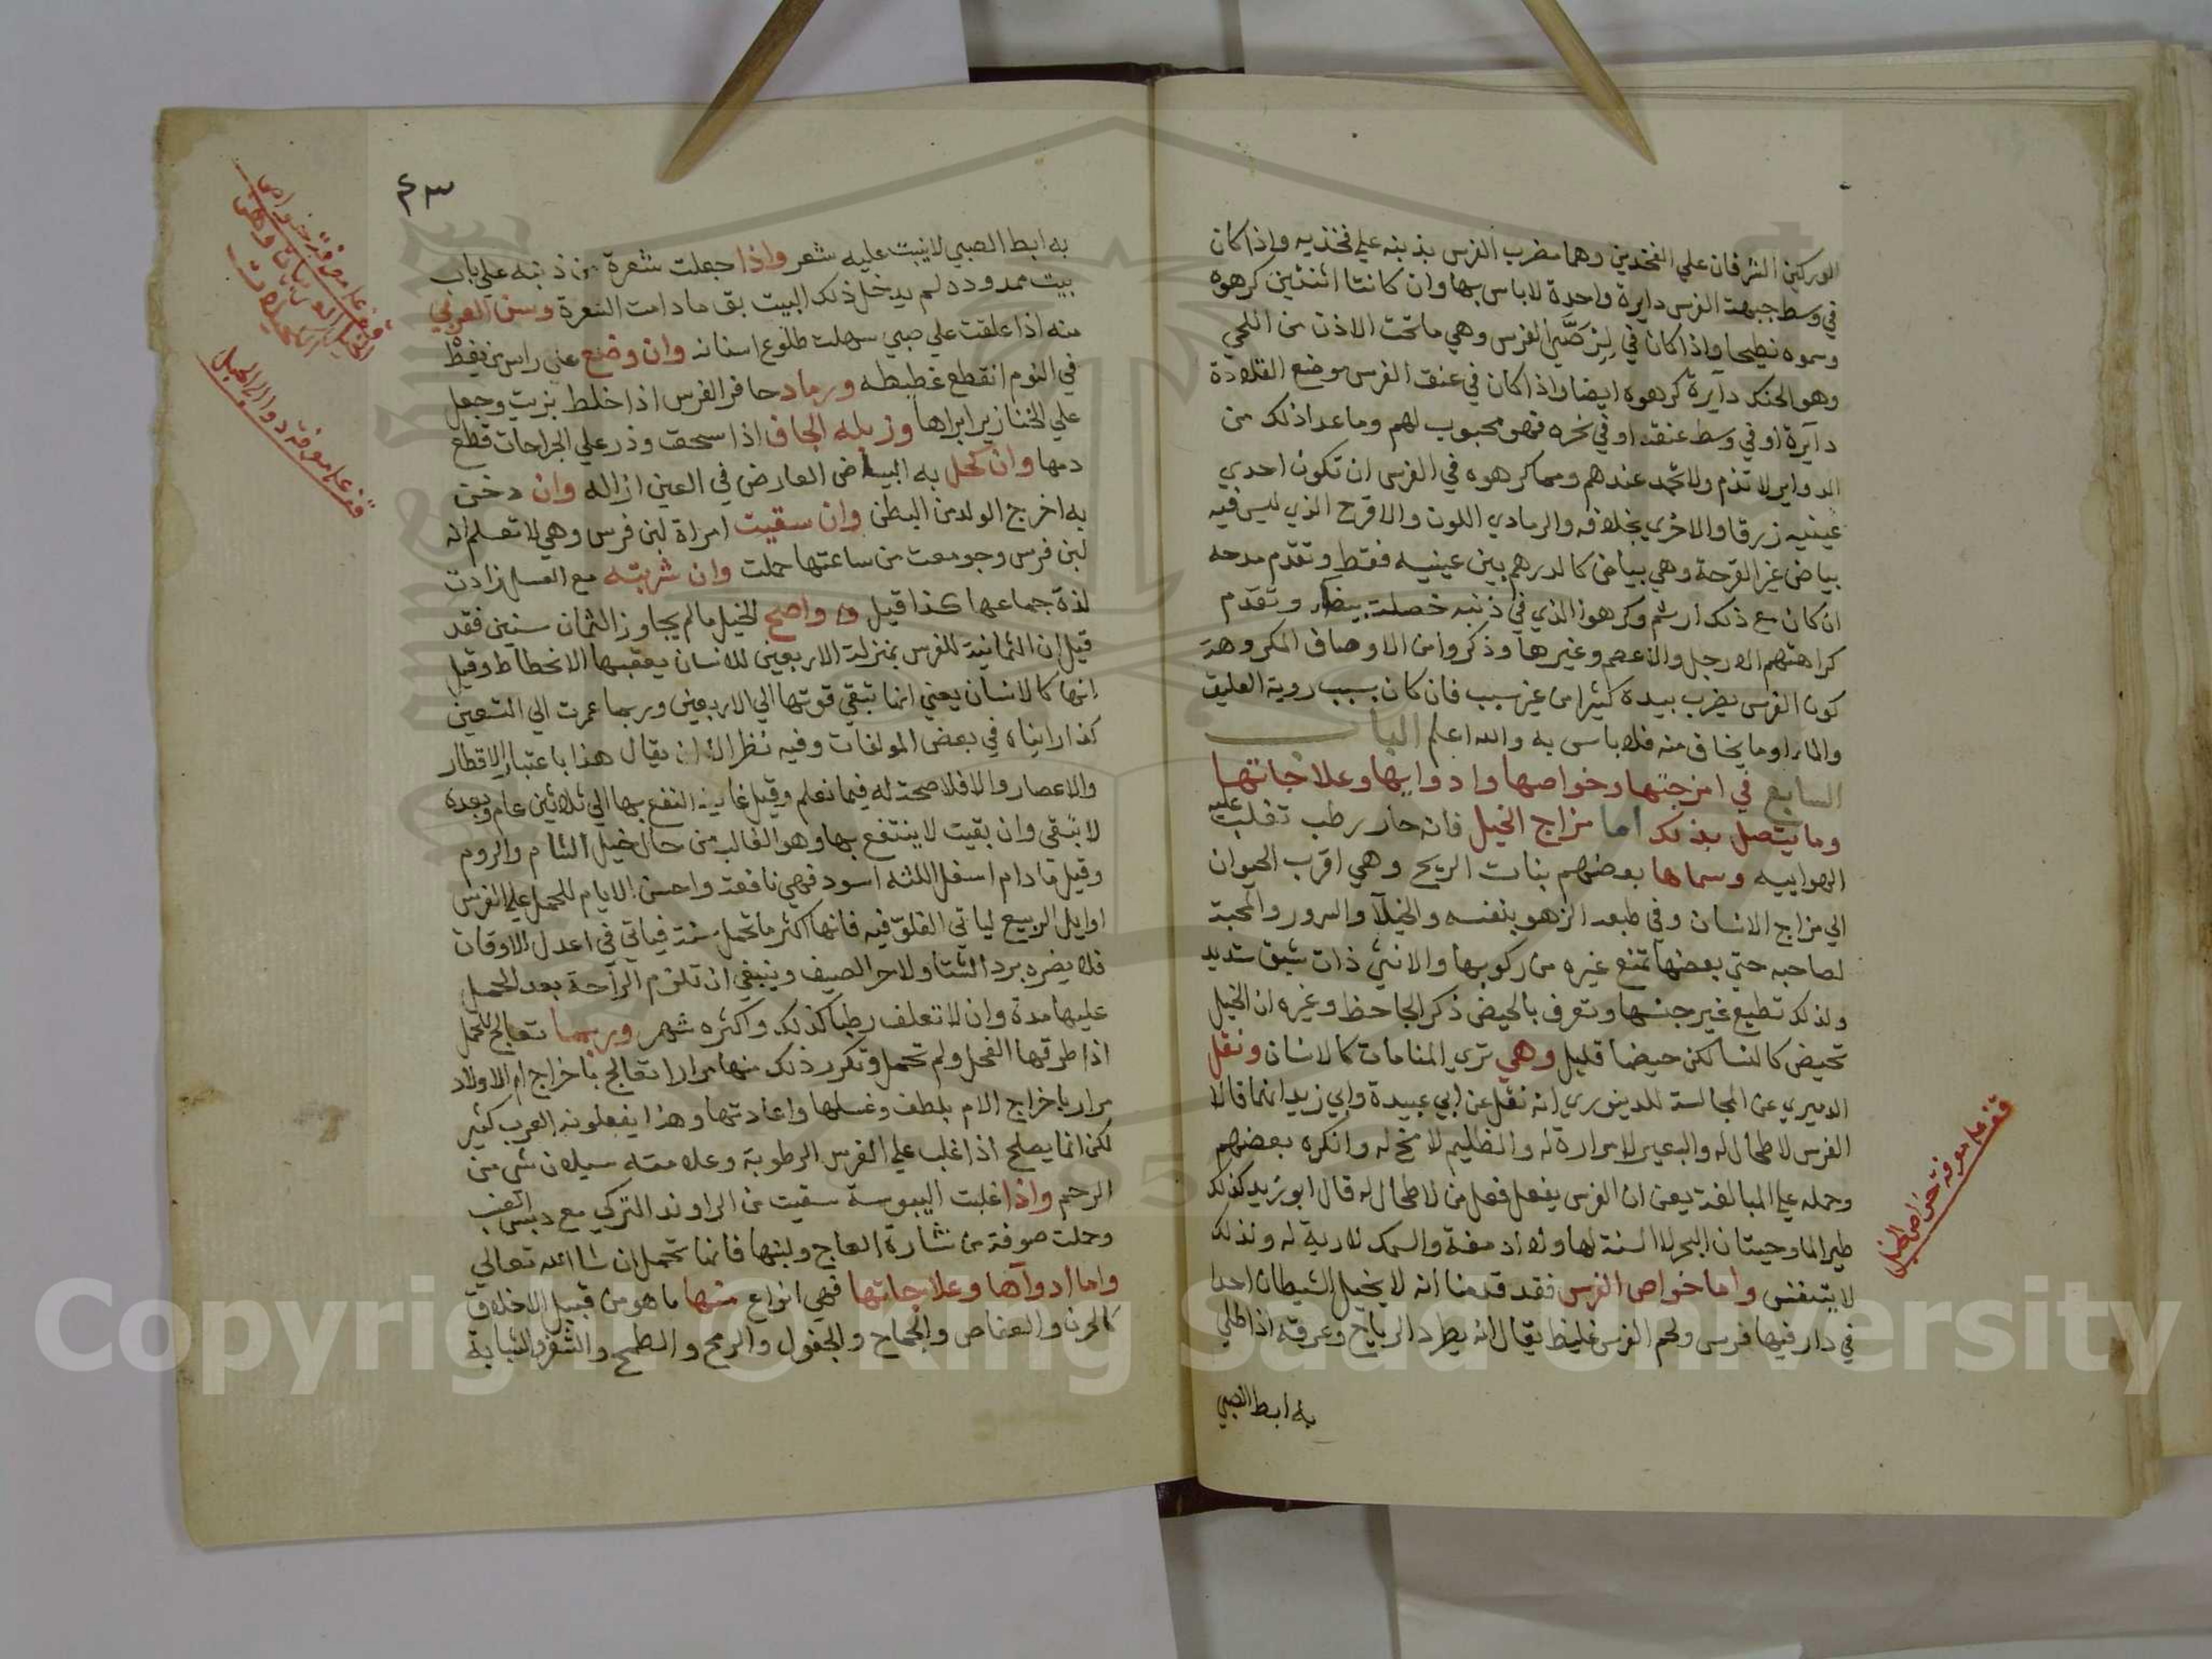 الوركين المشرفان علي الفخذين وهما مضرب الفرس بذنبه علي فخذيه واذا كان
في وسط جبهة الفرس دايرة واحدة لا باس بها وان كانتا اثنتين كرهوه
وسموه نطيحا واذا كان في الفرس وهي ما تحت الاذن من اللحي
وهو الحنك دآيرة كرهوه ايضا واذا كان في عنق الفرس موضع القلادة
دآيرة او في وسط عنقه او في نحره فهو محبوب لهم وما عدا ذلك من
الدواير لا تذم ولا تحمد عندهم ومما كرهوه في الفرس ان تكون احدي
عينيه زرقا والاخري بخلافه والرمادي اللون والاقرح الذي ليس فيه
بياض غير القرحة وهي بياض كالدرهم بين عينيه فقط وتقدم مدحه
ان كان مع ذلك ارثم وكرهوا الذي في ذنبه خصلة بيضآء وتقدم
كراهتهم الارجل والاعصم وغيرها وذكروا من الاوصاف المكروهة
كون الفرس يضرب بيده كثيرا من غير سبب فان كان بسبب روية العليق
والماء او ما يخاف منه فلا باس به والله اعلم الباب
السابع في امزجتها وخواصها وادوايها وعلاجاتها
وما يتصل بذلك اما مزاج الخيل فانه حار رطب تغلب عليه
الهواييه وسماها بعضهم بنات الريح وهي اقرب الحيوان
الي مزاج الانسان وفي طبعه الزهو بنفسه والخيلآ والسرور والمحبة
لصاحبه حتي بعضها تمنع غيره من ركوبها والانثي ذات شبق شديد
ولذلك تطيع غير جنسها وتعرف بالحيض ذكر الجاحظ وغيره ان الخيل
تحيض كالنسا لكن حيضا قليل وهي تري المنامات كالانسان ونقل
الدميري عن المجالسة للدينوري انه نقل عن ابي عبيدة وابي زيد انهما قالا
الفرس لا طحال له والبعير لا مرارة له والظليم لا مخ له وانكره بعضهم
وحمله علي المبالغة يعني ان الفرس يفعل فعل من لا طحال له قال ابو زيد كذلك
طير الما وحيتان البحر لا السنة لها ولا ادمغة والسمك لا رية له ولذلك
لا يتنفس واما خواص الفرس فقد قدمنا انه لا يخبل الشيطان احدا
في دار فيها فرس ولحم الفرس غليظ يقال انه يطرد الرياح وعرقه اذا طلي
به ابط الصبي
قف علي معرفة خواص الخيل
٤٣
به ابط الصبي لا ينبت عليه شعر واذا جعلت شعرة من ذنبه علي باب
بيت ممدودة لم يدخل ذلك البيت بق ما دامت الشعرة وسن العربي
منه اذا علقت علي صبي سهلت طلوع اسنانه وان وضع علي راس من يغط
في النوم انقطع غطيطه ورماد حافر الفرس اذا خلط بزيت وجعل
علي الخنازير ابراها وزبله الجاف اذا سحق وذر علي الجراحات قطع
دمها وان كحل به البياض العارض في العين ازاله وان دخن
به اخرج الولد من البطن وان سقيت امراة لبن فرس وهي لا تعلم انه
لبن فرس وجومعت من ساعتها حملت وان شربته مع العسل زادت
لذة جماعها كذا قيل واصح الخيل ما لم يجاوز الثمان سنين فقد
قيل ان الثمانية للفرس بمنزلة الاربعين للانسان يعقبها الانحطاط وقيل
انها كالانسان يعني انما تبقي قوتها الي الاربعين وربما عمرت الي التسعين
كذا راينا في بعض المولفات وفيه نظر الا ان يقال هذا باعتبار الاقطار
والاعصار والا فلا صحة له فيما نعلم وقيل غاية النفع بها الي ثلاثين عام وبعده
لا تبقي وان بقيت لا ينتفع بها وهو الغالب من حال خيل الشام والروم
وقيل ما دام اسفل اللثه اسود فهي نافعة واحسن الايام للحمل علي الفرس
اوايل الربيع لياتي الفلو فيه فانها اكثر ما تحمل سنة فياتي في اعدل الاوقات
فلا يضره برد الشتا ولا حر الصيف وينبغي ان تلزم الراحة بعد الحمل
عليها مدة وان لا تعلف رطبا كذلك واكثره شهر وربما تعالج للحمل
اذا طرقها الفحل ولم تحمل وتكرر ذلك منها مرارا تعالج باخراج ام الاولاد
مرار باخراج الام بلطف وغسلها واعادتها وهذا يفعلونه العرب كثير
لكن انما يصلح اذا غلب علي الفرس الرطوبة وعلامته سيلان شي من
الرحم واذا غلبت اليبوسة سقيت من الراوند التركي مع دبس العنب
وحملت صوفة من نشارة العاج ولبنها فانها تحمل ان شا الله تعالي
واما ادوآها وعلاجاتها فهي انواع منها ما هو من قبيل الاخلاق
كالحرن والعضاض والجماح والجفول والرمح والطمح والشغز والشبابة
قف علي معرفة
قف علي معرفة دوا الخيل